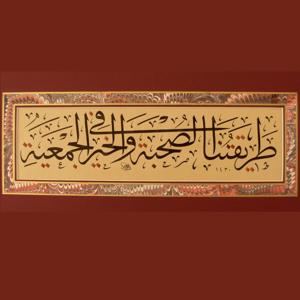 طريقتنا الصحبة والخير في الجمعية
١٤٣٠